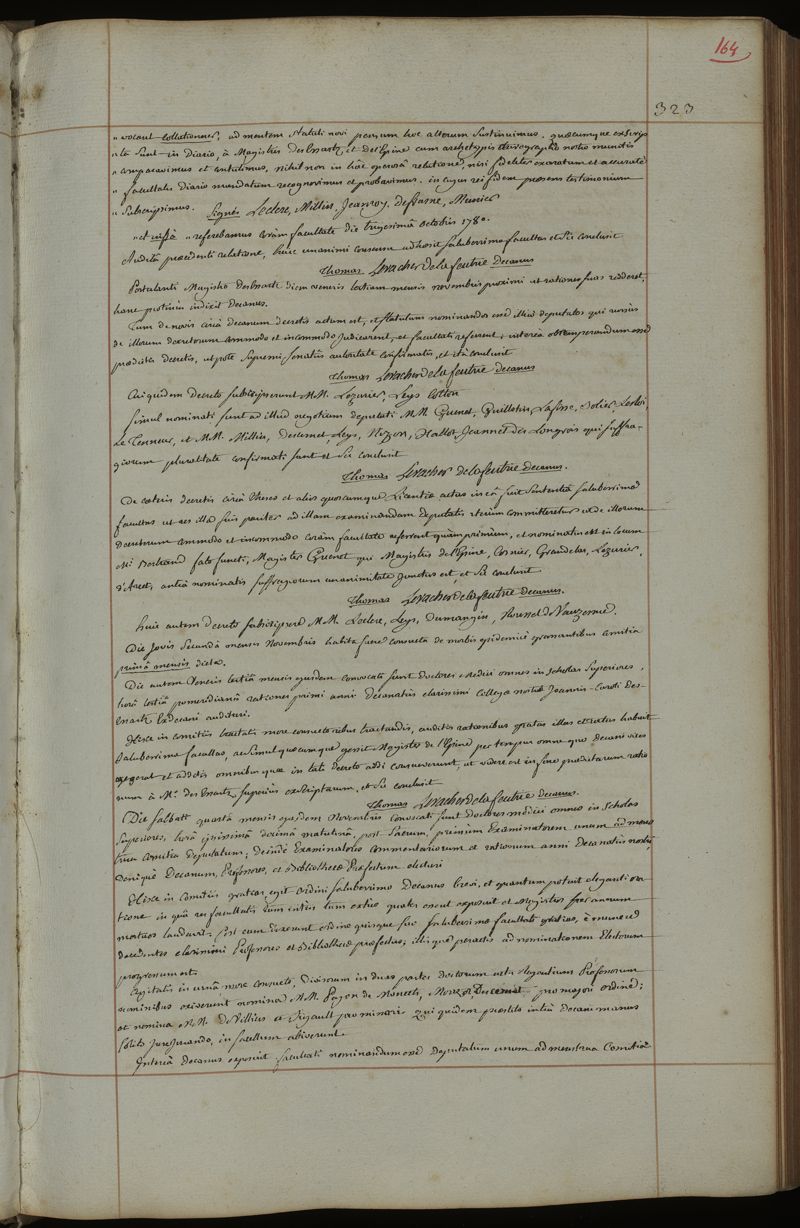 164
323
" vocant collationes, ad mentem Statuti novi pensum hoc alterum Sustinuimus. quæcumque exscrip
" ta sunt in Diario, à Magistris DesEssartz et del'Epine cum archetypis chirographis nostro munitis
" comparavimus et contulimus, nihil non in hâc operosâ relatione, nisi fideliter exaratum et accurate
" facultatis Diario mandatum recognovimus et probavimus. in cujus rei fidem præsens testimonium
" Subscripsimus. Signés Leclerc, Millin, Jeanroy, Deslarne, Meunier
" et infrà " referebamus coràm facultate die trigesimâ octobris 1780.
Auditâ præcedenti relatione, huic unanimi consensu adhæsit Saluberrima facultas et Sic conclusit
Thomas Levacher de la feutrie Decanus
Postulanti Magistro desEssartz diem veneris tertiam mensis novembris proximi ut rationes suas redderet,
hanc protinùs indixit Decanus.
Tum de novis circà decanum decretis actum est, et Statutum nominandos esse illius deputatos qui rursùs
de illorum decretorum commodo et incommodo Judicarent, et facultati referrent; intereà obtemperandum esse
prædictis decretis, utpote Supremi Senatûs autoritate confirmatis, et ità conclusit
Thomas Levacher de la feutrie decanus
Cui quidem Decreto subscripserunt MM. Lezurier, Leys Cotton
Simul nominati sunt ad illud negotium deputati MM. Guenet, Guillotin, Lafisse, Solier,
Le Tenneur, et MM. Millin, Descemet, Leys, Nizon, Hallot, Jeannet des Longrois qui suffra-
giorum pluralitate confirmati sunt et Sic conclusit
Thomas Levacher de la feutrie decanus.
De cæteris decretis circà Theses et alios quoscumque Licentiæ actus in eâ fuit Sententiâ Saluberrima
facultas ut res illa suis pariter ad illam examinandam deputatis iterùm committeretur ut de illorum
Decretorum commodo et incommodo coràm facultate referrent quàm primùm, et nominatus est in locum
M. Bertrand fato functi, Magister Guenet qui Magistris de l'Epine, Cosnier, Grandclas, Lezurier,
d'Arcet, anteà nominatis suffragiorum unanimitate Junctus est, et Sic conclusit
Thomas Levacher de la feutrie Decanus.
huic autem decreto subscripsere MM. Leclerc, Leys, Dumangin, Roussel de Vauzesme.
Die Jovis Secundâ mensis Novembris habita fuere consueta de morbis epidemicè grassantibus Comitia
primâ mensis dicta.
Die autem Veneris tertiâ mensis ejusdem convocati sunt Doctores Medici omnes in scholas Superiores,
horâ tertiâ pomeridianâ rationes primi anni Decanatûs clarissimi Collegæ nostri Joannis-Caroli Des-
Essartz Exdecani audituri.
Hisce in comitiis tractatis more consueto rebus tractandis, auditis rationibus gratas illas et rectas habuit
Saluberrima facultas, ac simul quæcumque gessit Magister de l'Epine per tempus omne quo decani vices
egerat et additis omnibus quæ in tali decreto addi consueverunt, ut videre est in fine prædictarum ratio
num à Mo. des Essartz superiùs exscriptarum, et Sic conclusit
Thomas Levacher de la feutrie decanus.
Die Sabbati quartâ mensis ejusdem Novembris convocati sunt doctores medici omnes in scholas
Superiores, horâ ipsissimâ decimâ matutinâ, post Sacrum, primùm Examinatorem unum ad mens
trua Comitia deputatum; deindè Examinatores Commentariorum et rationum anni Decanatûs nostri,
denique Decanum, Professores, et Bibliothecæ Præfectum electuri
Hisce in Comitiis gratias egit ordini Saluberrimo Decanus brevi, et quantum potuit eleganti ora
tione in quâ res facultatis tùm intùs tùm extrà quales essent exposuit et Magistros hoc anno
mortuos laudavit. Post eum dixerunt ordine quisque suo Saluberrimæ facultati gratias, è munere
decedentes clarissimi Professores et Bibliothecæ præfectus; illisque peractis ad nominationem Electorum
progressum est.
Agitatis in urnâ more consueto, divisorum in duas partes Doctorum ritè Regentium Professorum
nominibus exiverunt nomina MM. Pajon de Moncets, Moreau, Descemet pro majori ordine;
et nomina MM. de Villiers et Rigault pro minori: qui quidem præstito intrà decani manus
solito Jurejurando, in sacellum abiverunt.
Intereà Decanus exposuit facultati nominandum esse Deputatum unum ad menstrua Comitia